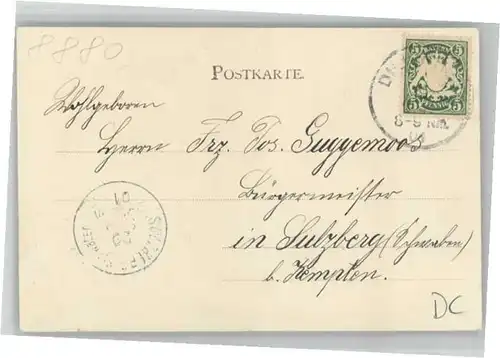 8880
POSTKARTE.
5 BAYERN 5
5 PFENNIG 5
8-9 NM.
Wohlgeboren
Herrn Frz. Jos. Guggemoos
Bürgermeister
in Sulzberg (Schwaben)
b. Kempten.
SULZBERG
01
DC